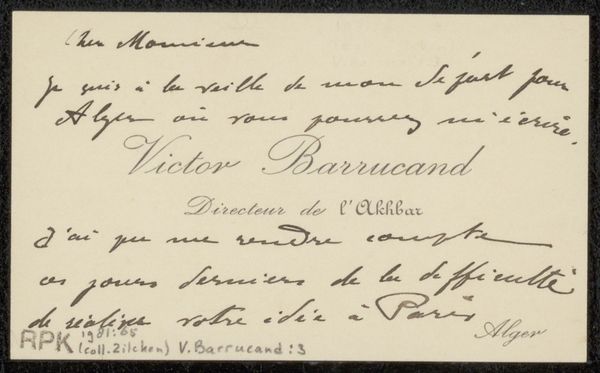 Cher Monsieur
je suis à la veille de mon départ pour
Alger où vous pourrez m'écrire.
Victor Barrucand
Directeur de l'Akhbar
J'ai pu me rendre compte
ces jours derniers de la difficulté
de réaliser votre idée à Paris
Alger
RPK 1981:65
(coll. Zilcken) V. Barrucand: 3